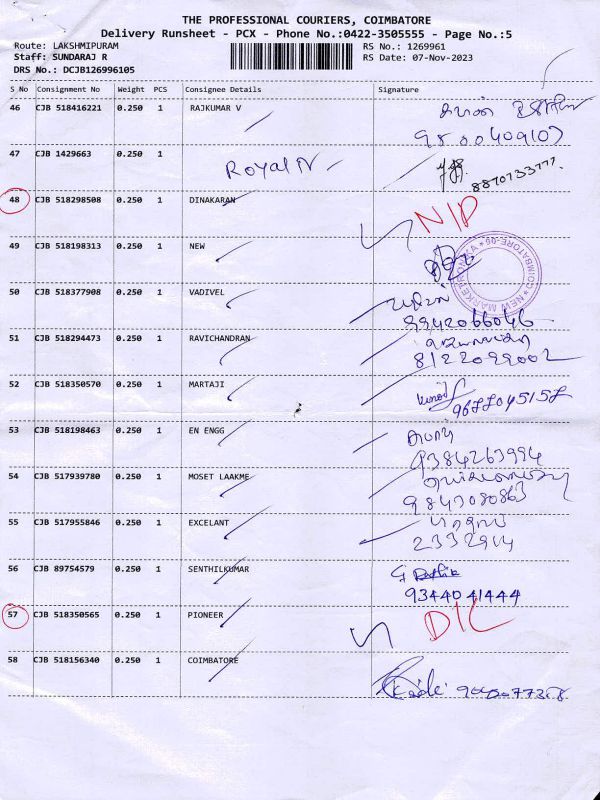 THE PROFESSIONAL COURIERS, COIMBATORE
Delivery Runsheet - PCX - Phone No.:0422-3505555 - Page No.:5
Route: LAKSHMIPURAM RS No.: 1269961
Staff: SUNDARAJ R RS Date: 07-Nov-2023
DRS No.: DCJB126996105
S No Consignment No Weight PCS Consignee Details Signature
46 CJB 518416221 0.250 1 RAJKUMAR V
9500409107
47 CJB 1429663 0.250 1 Royal N
8870733777.
48 CJB 518298508 0.250 1 DINAKARAN N/D
49 CJB 518198313 0.250 1 NEW
COIMBATORE-09 ★ NEW MARKETRONIKA ★
50 CJB 518377908 0.250 1 VADIVEL
9942066046
51 CJB 518294473 0.250 1 RAVICHANDRAN
8122099002
52 CJB 518350570 0.250 1 MARTAJI
9677045157
53 CJB 518198463 0.250 1 EN ENGG
9384263994
54 CJB 517939780 0.250 1 MOSET LAAKME
9843080863
55 CJB 517955846 0.250 1 EXCELANT
2332914
56 CJB 89754579 0.250 1 SENTHILKUMAR
9344041444
57 CJB 518350565 0.250 1 PIONEER D/L
58 CJB 518156340 0.250 1 COIMBATORE